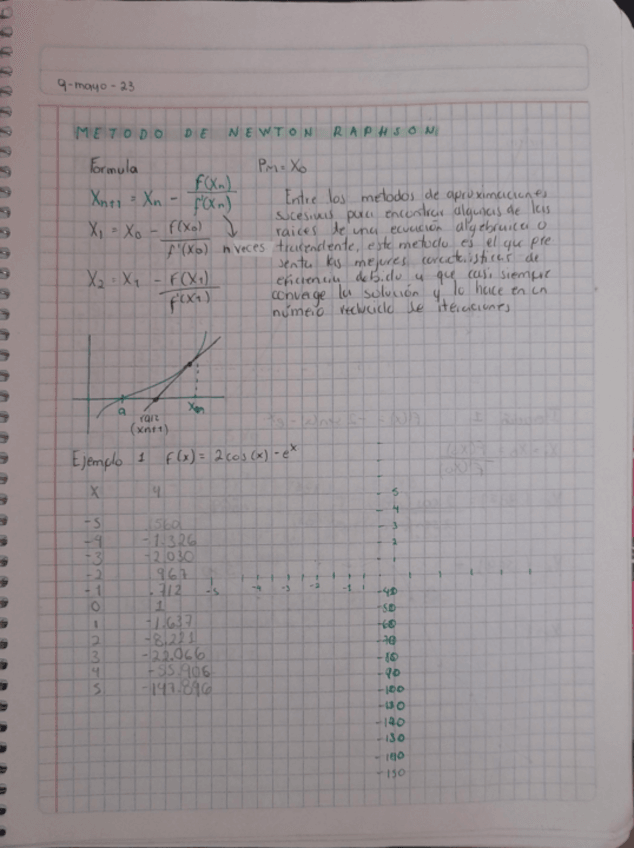 9-mayo-23
METODO DE NEWTON RAPHSON
Formula
Pm = X0
Xn+1 = Xn - f(Xn)/f'(Xn)
X1 = X0 - f(X0)/f'(X0) n veces
X2 = X1 - F(X1)/f'(X1)
Entre los metodos de aproximaciones
sucesivas para encontrar algunas de las
raices de una ecuación algebraica o
trascendente, este metodo es el que pre
senta las mejores características de
eficiencia debido a que casi siempre
converge la solución y lo hace en un
número reducido de iteraciones
a
raiz
(xn+1)
Xn
Ejemplo 1 f(x) = 2cos(x) - e^x
X y
-5 .560
-4 -1.326
-3 -2.030
-2 .967
-1 .712
0 1
1 -1.637
2 -8.221
3 -22.066
4 -55.906
5 -147.846
5
4
3
2
-5 -4 -3 -2 -1
-40
-50
-60
-70
-80
-90
-100
-130
-140
-130
-140
-150